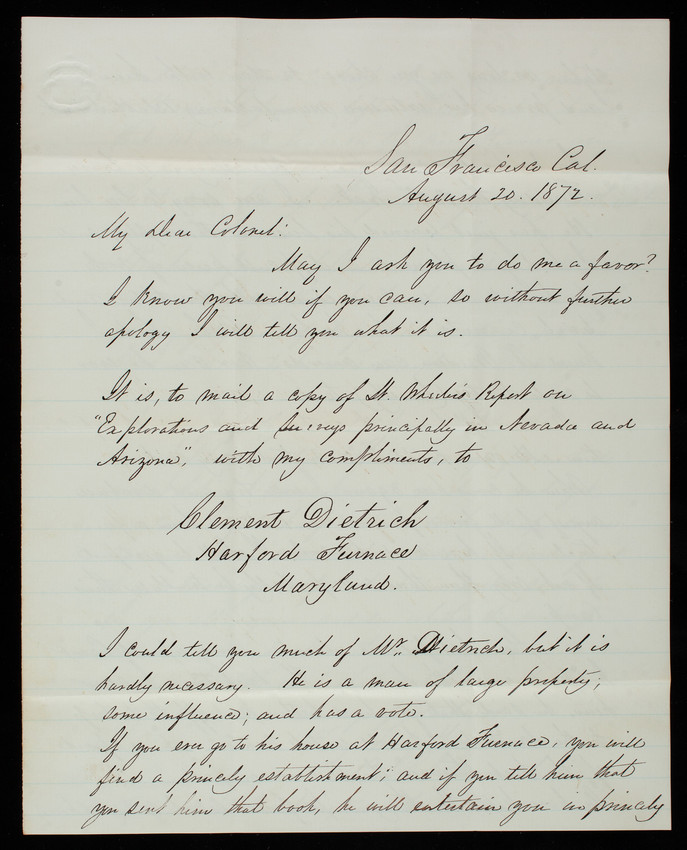 San Francisco Cal.
August 20. 1872.
My Dear Colonel:
May I ask you to do me a favor?
I know you will if you can, so without further
apology I will tell you what it is.
It is, to mail a copy of Lt. Wheeler's Report on
"Explorations and Surveys principally in Nevada and
Arizona", with my compliments, to
Clement Dietrich
Harford Furnace
Maryland.
I could tell you much of Mr. Dietrich, but it is
hardly necessary. He is a man of large property;
some influence; and has a vote.
If you ever go to his house at Harford Furnace, you will
find a princely establishment; and if you tell him that
you sent him that book, he will entertain you in princely